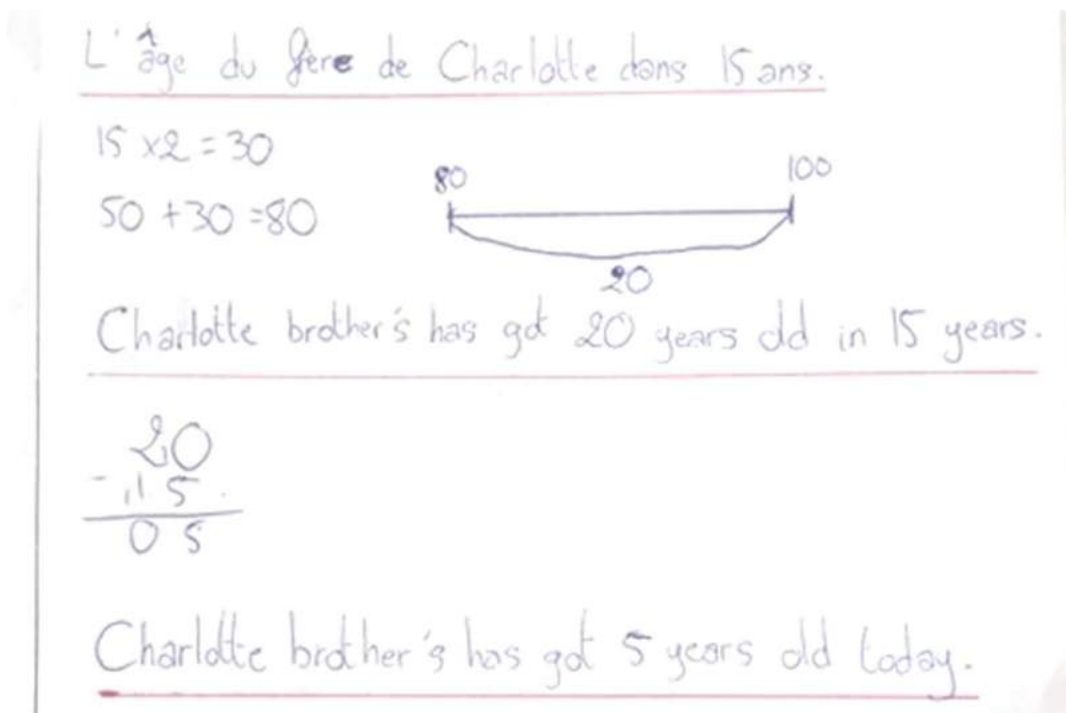 L'âge du frère de Charlotte dans 15 ans.
15 x2 = 30
50 + 30 = 80
80 100
20
Charlotte brother's has got 20 years old in 15 years.
20
- 15
05
Charlotte brother's has got 5 years old today.